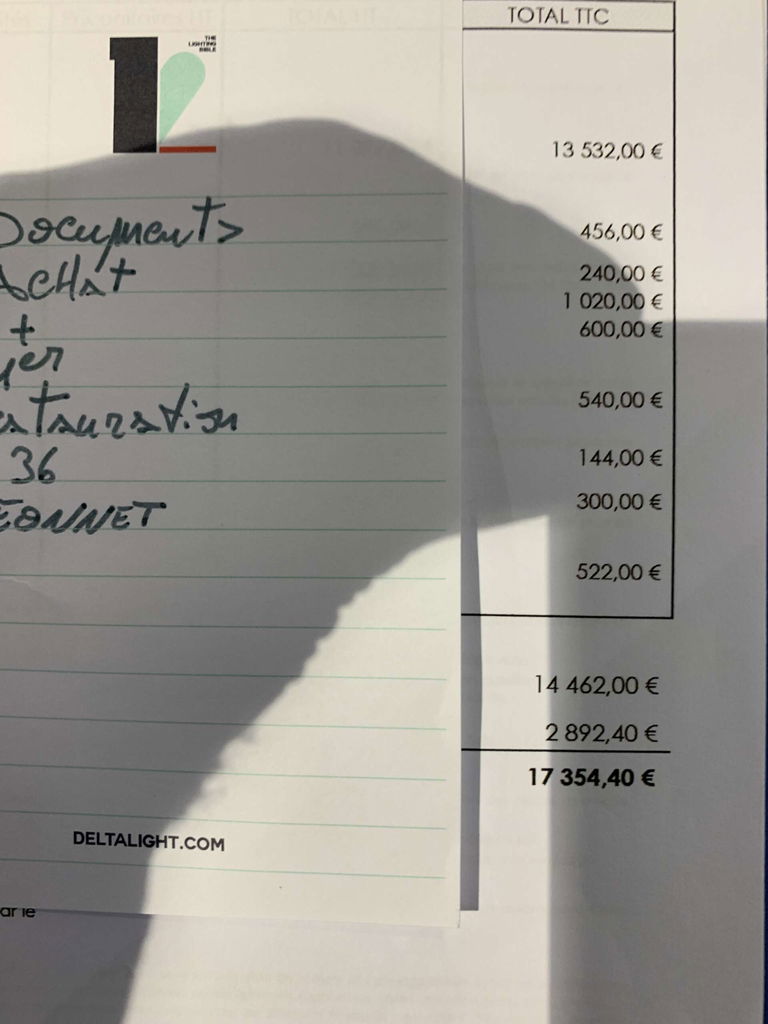 TOTAL TTC
THE
LIGHTING
BIBLE
13 532,00 €
Documents
456,00 €
Achat
240,00 €
1 020,00 €
+
600,00 €
540,00 €
36
144,00 €
300,00 €
522,00 €
14 462,00 €
2 892,40 €
17 354,40 €
DELTALIGHT.COM
ar le